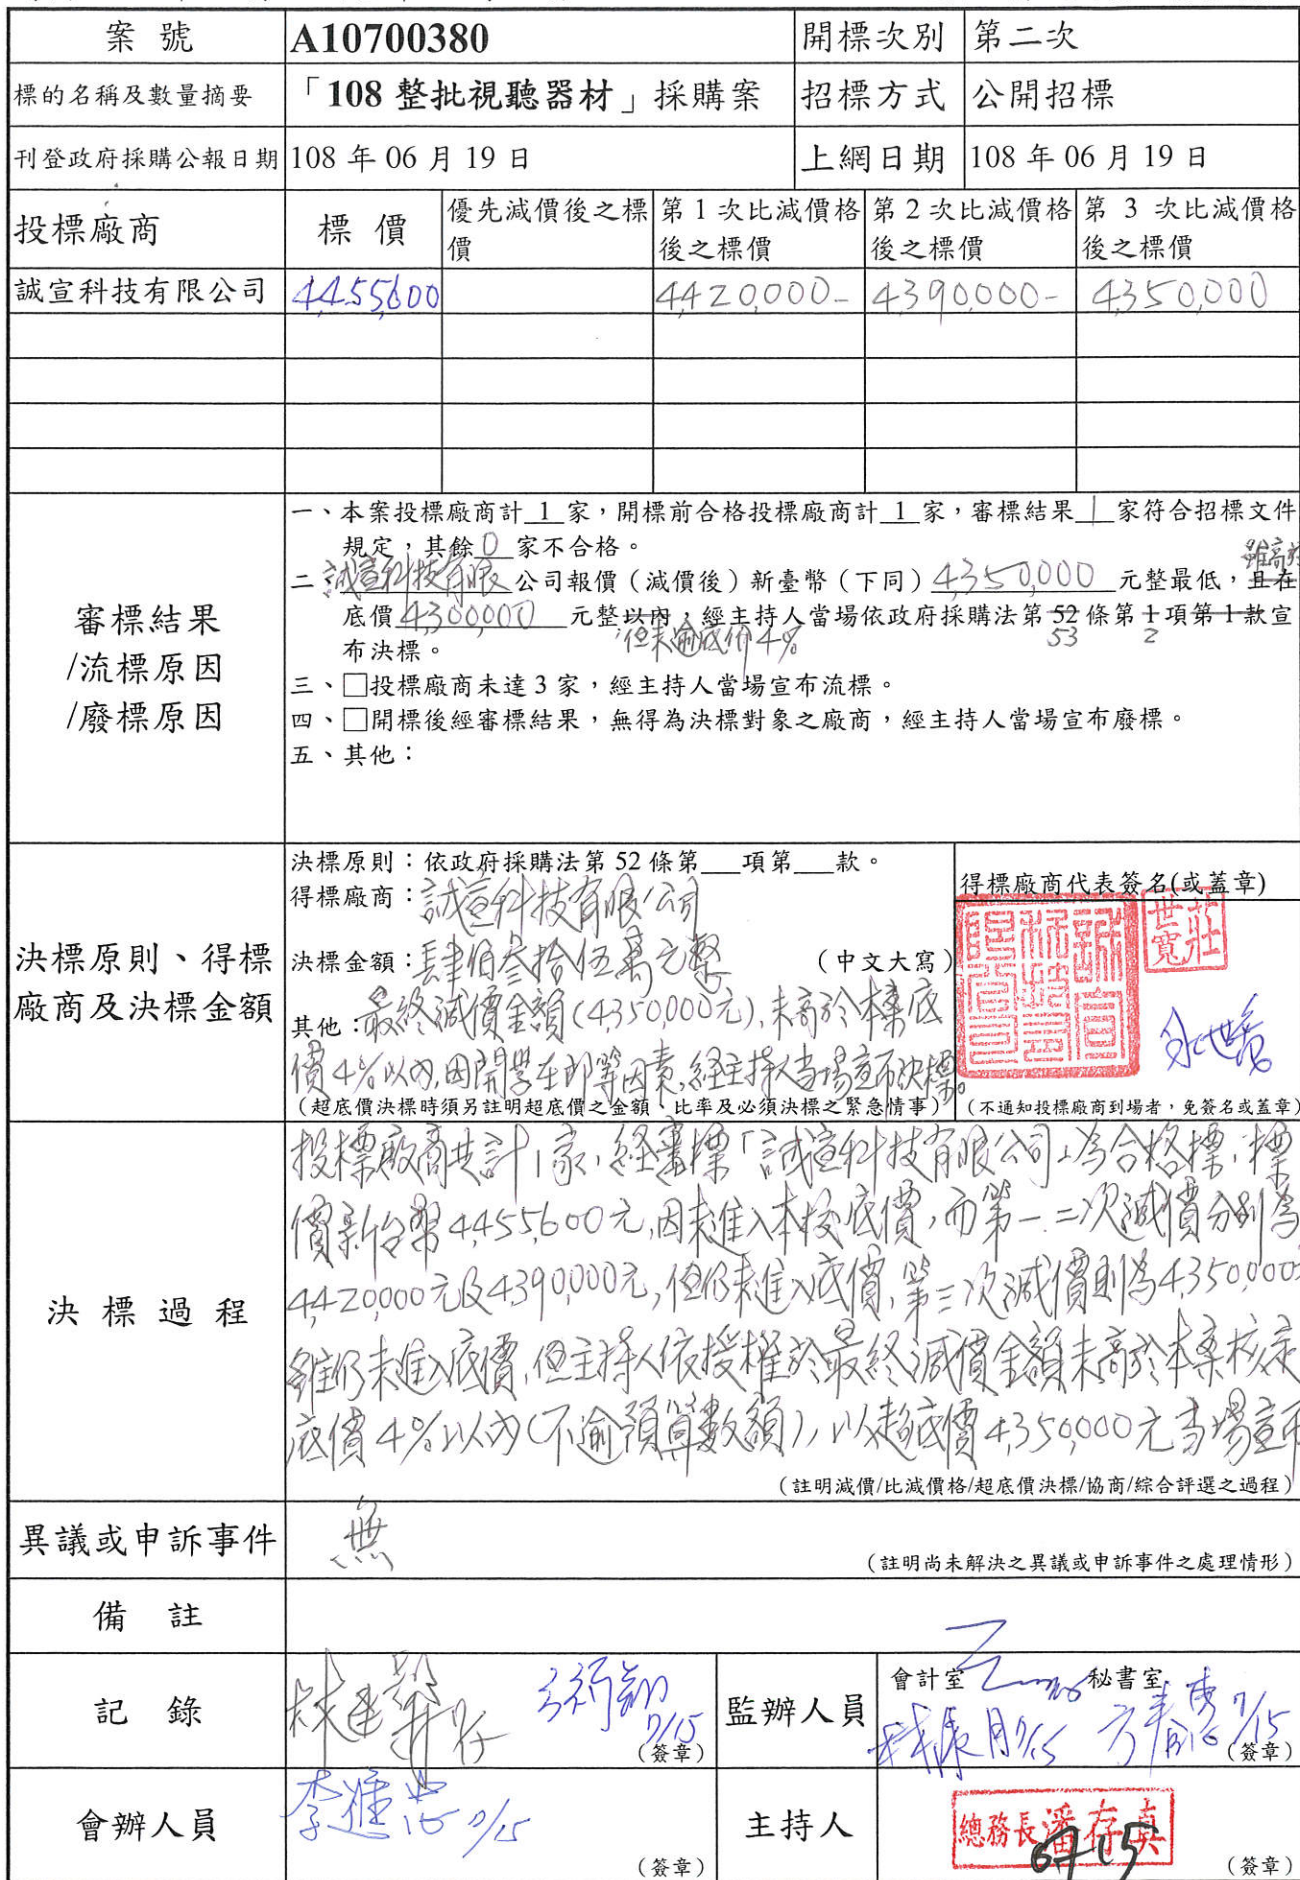 案 號 A10700380 開標次別 第二次
標的名稱及數量摘要 「108 整批視聽器材」採購案 招標方式 公開招標
刊登政府採購公報日期 108 年 06 月 19 日 上網日期 108 年 06 月 19 日
投標廠商 標 價 優先減價後之標價 第 1 次比減價格後之標價 第 2 次比減價格後之標價 第 3 次比減價格後之標價
誠宣科技有限公司 4,455,600 4,420,000- 4,390,000- 4,350,000
審標結果
/流標原因
/廢標原因
一、本案投標廠商計 1 家,開標前合格投標廠商計 1 家,審標結果 1 家符合招標文件
規定,其餘 0 家不合格。
雖高於
二、誠宣科技有限公司報價(減價後)新臺幣(下同)4,350,000 元整最低,且在
底價 4,300,000 元整以內,經主持人當場依政府採購法第 52 條第 1 項第 1 款宣
但未逾底價 4% 53 2
布決標。
三、□投標廠商未達 3 家,經主持人當場宣布流標。
四、□開標後經審標結果,無得為決標對象之廠商,經主持人當場宣布廢標。
五、其他:
決標原則、得標
廠商及決標金額
決標原則:依政府採購法第 52 條第___項第___款。
得標廠商:誠宣科技有限公司
決標金額:肆佰參拾伍萬元整 (中文大寫)
其他:最終減價金額(4,350,000元),未高於本案底
價4%以內,因開學在即等因素,經主持人當場宣布決標。
(超底價決標時須另註明超底價之金額、比率及必須決標之緊急情事)
得標廠商代表簽名(或蓋章)
莊世寬
(不通知投標廠商到場者,免簽名或蓋章)
決 標 過 程
投標廠商共計1家,經審標「誠宣科技有限公司」為合格標,標
價新台幣4,455,600元,因未進入本校底價,而第一、二次減價分別為
4,420,000元及4,390,000元,但仍未進入底價,第三次減價則為4,350,000
雖仍未進入底價,但主持人依授權於最終減價金額未高於本案核定
底價4%以內(不逾預算數額),以超底價4,350,000元當場宣布
(註明減價/比減價格/超底價決標/協商/綜合評選之過程)
異議或申訴事件 無
(註明尚未解決之異議或申訴事件之處理情形)
備 註
記 錄 7/15 (簽章) 監辦人員 會計室 秘書室 7/15 (簽章)
會辦人員 李進忠 7/15 (簽章) 主持人 總務長潘存真 (簽章)